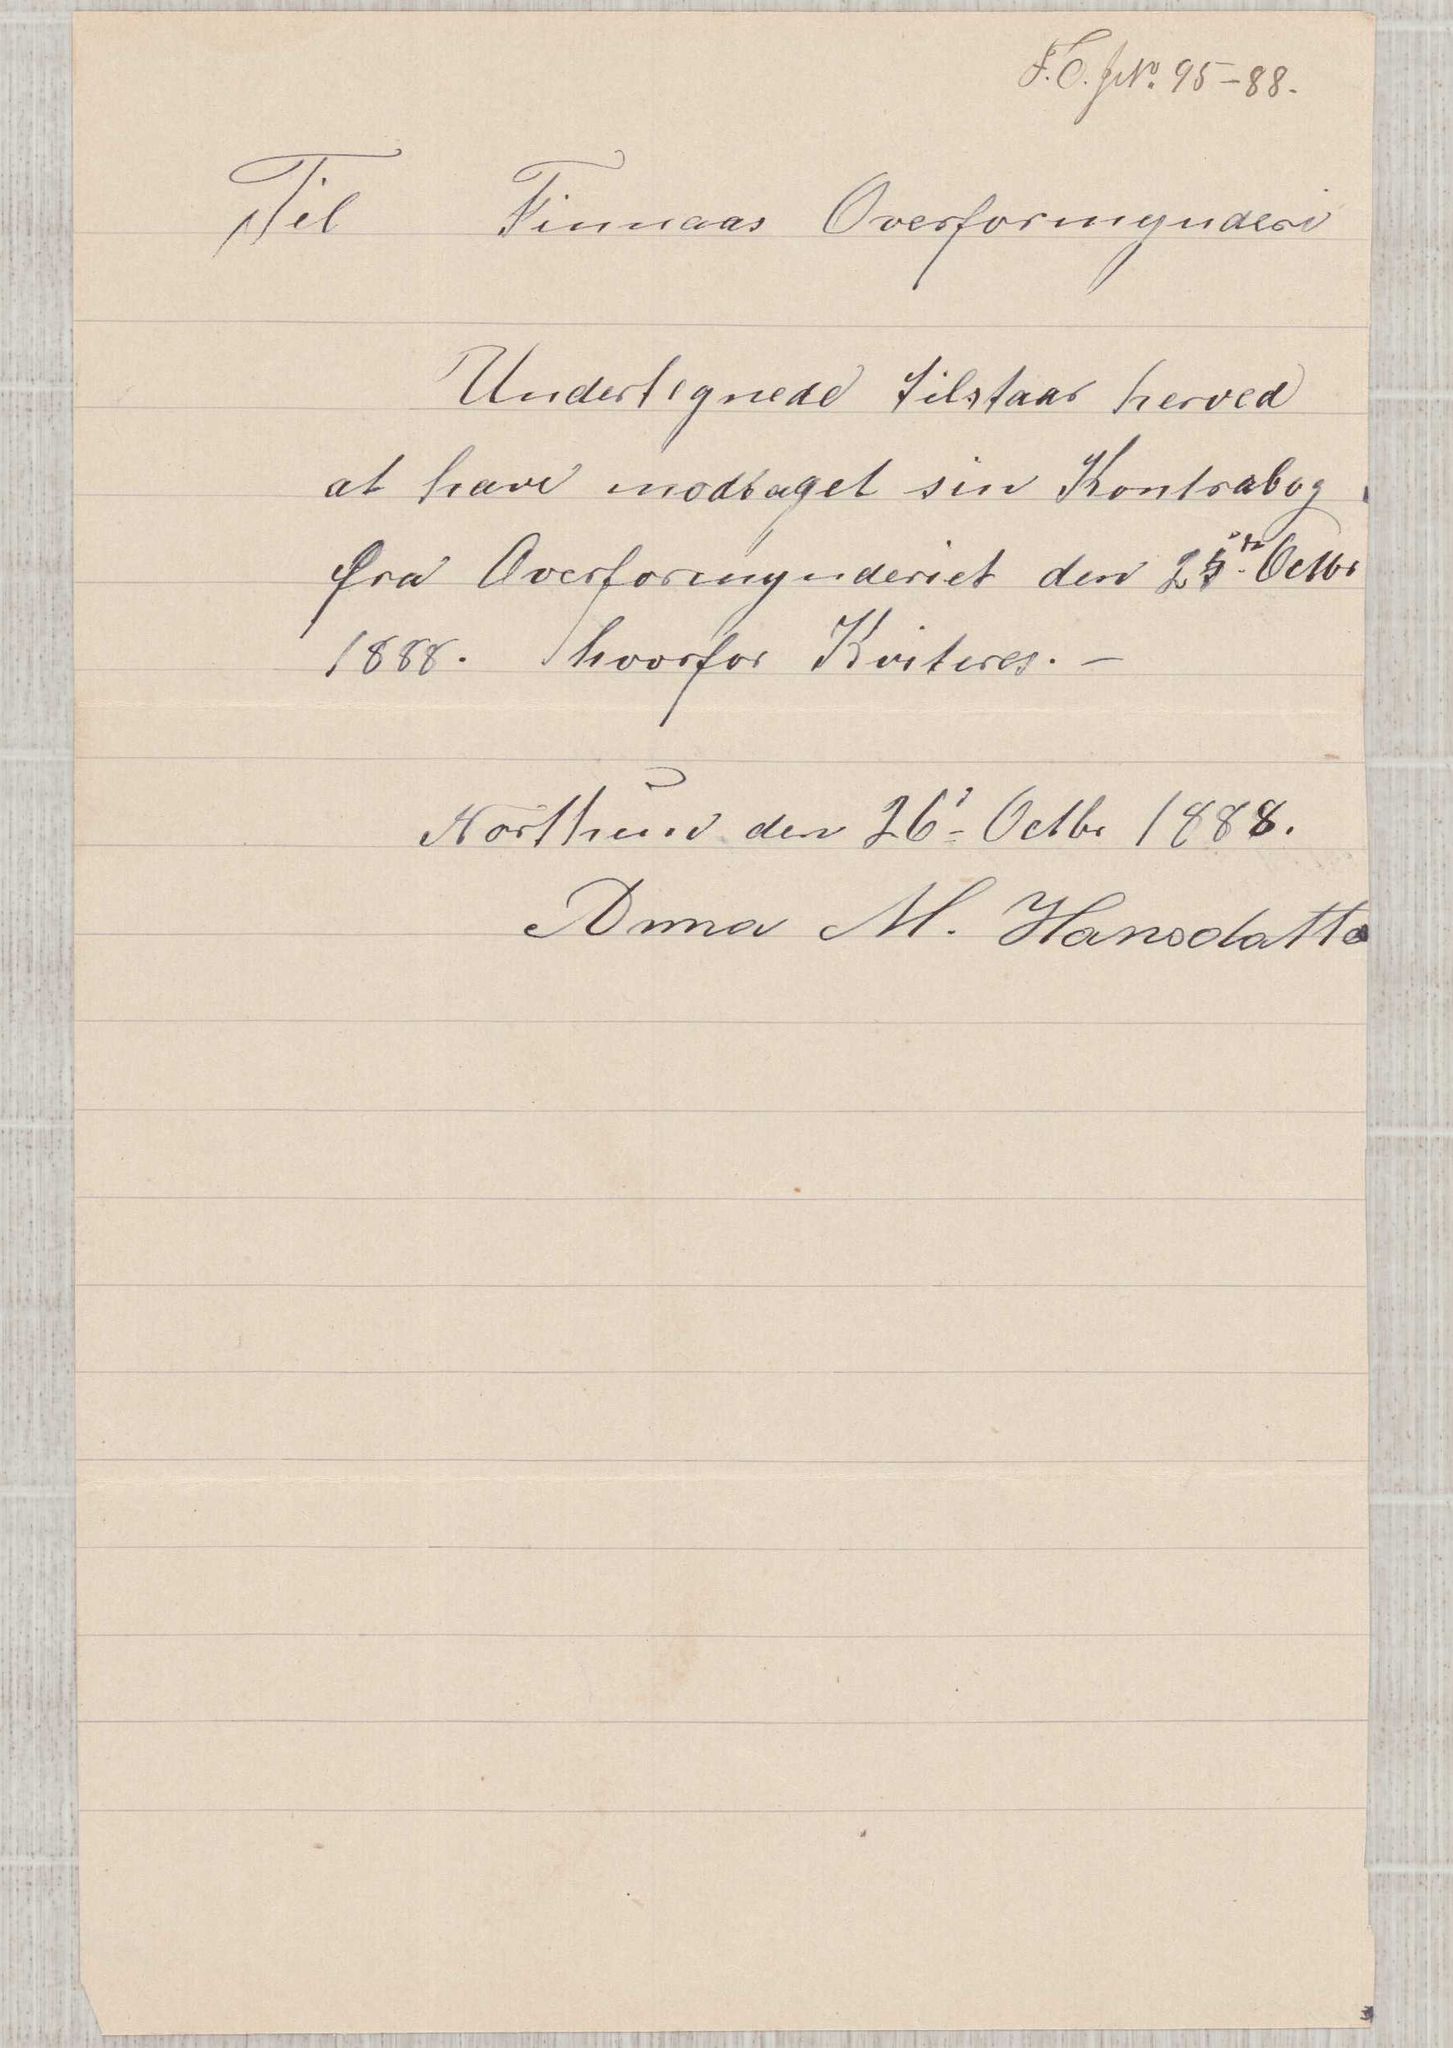 F.O. JNo. 95-88.
Til Finnaas Overformynderi
Undertegnede tilstaar herved
at have modtaget sin Kontrabog
fra Overformynderiet den 25de Octbr
1888. hvorfor Kviteres. –
den 26' Octbr 1888.
Anna M. Hansdatte